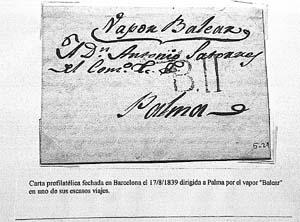 Vapor Balear
A Dn. Antonio Satorres
Palma
B.11
5.29
Carta prefilatélica fechada en Barcelona el 17/8/1839 dirigida a Palma por el vapor "Balear"
en uno de sus escasos viajes.